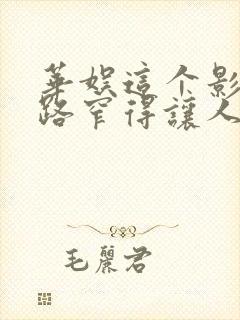 華娛這個影
路窄得讓人
毛麗君